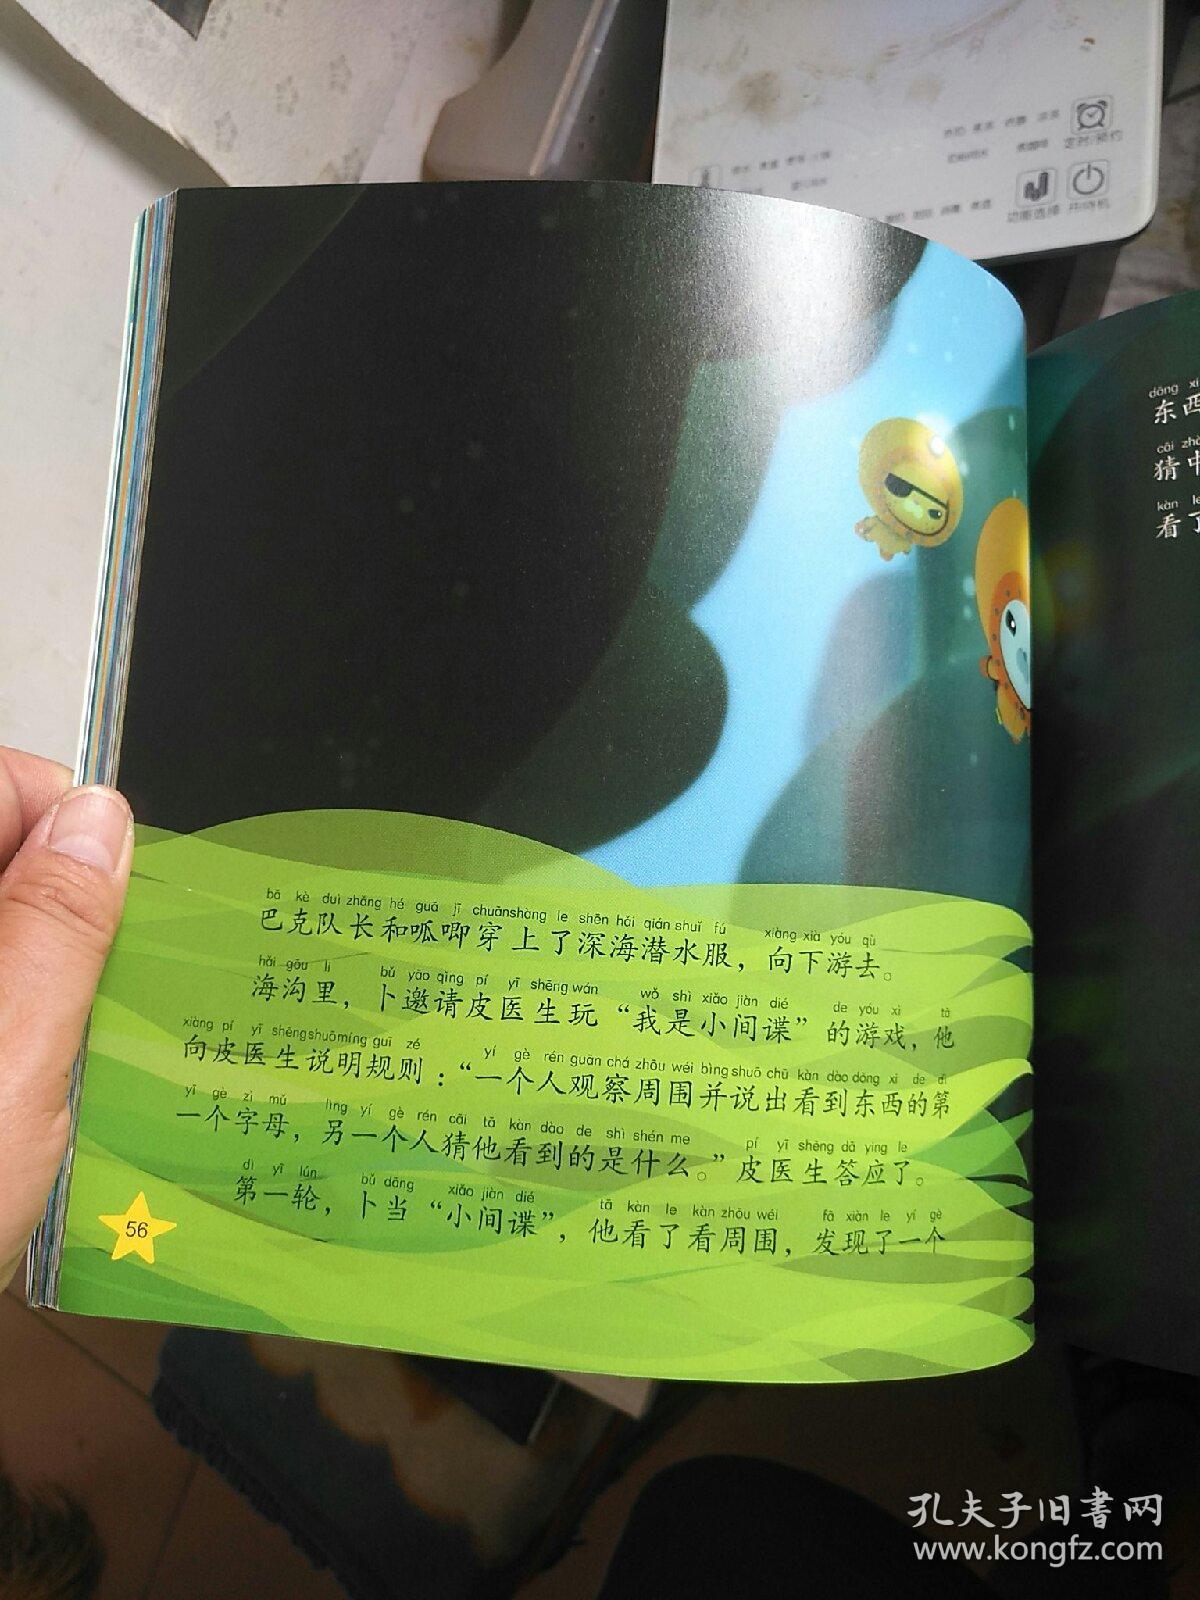 定时/预约
功能选择 开/待机
bā kè duì zhǎng hé guā jī chuānshàng le shēn hǎi qián shuǐ fú xiàng xià yóu qù
巴克队长和呱唧穿上了深海潜水服，向下游去。
hǎi gōu lǐ bǔ yāo qǐng pí yī shēng wán wǒ shì xiǎo jiàn dié de yóu xì tā
海沟里，卜邀请皮医生玩“我是小间谍”的游戏，他
xiàng pí yī shēngshuōmíng guī zé yí gè rén guān chá zhōu wéi bìng shuō chū kàn dào dōng xi de dì
向皮医生说明规则：“一个人观察周围并说出看到东西的第
yī gè zì mǔ lìng yí gè rén cāi tā kàn dào de shì shén me pí yī shēng dā ying le
一个字母，另一个人猜他看到的是什么。”皮医生答应了。
dì yī lún bǔ dāng xiǎo jiàn dié tā kàn le kàn zhōu wéi fā xiàn le yí gè
第一轮，卜当“小间谍”，他看了看周围，发现了一个
56
dōng xi
东西
cāi
猜
kàn
看了
孔夫子旧书网
www.kongfz.com